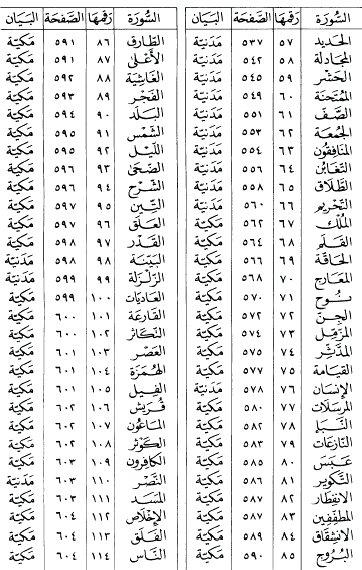 السُّورَة رَقمهَا الصَّفحَة البَيَان
الحَديد ٥٧ ٥٣٧ مَدَنيّة
المجَادلة ٥٨ ٥٤٢ مَدَنيّة
الحَشر ٥٩ ٥٤٥ مَدَنيّة
المُمتَحنَة ٦٠ ٥٤٩ مَدَنيّة
الصَّف ٦١ ٥٥١ مَدَنيّة
الجُمعَة ٦٢ ٥٥٣ مَدَنيّة
المنَافِقون ٦٣ ٥٥٤ مَدَنيّة
التغَابُن ٦٤ ٥٥٦ مَدَنيّة
الطَّلَاق ٦٥ ٥٥٨ مَدَنيّة
التّحْريم ٦٦ ٥٦٠ مَدَنيّة
المُلك ٦٧ ٥٦٢ مَكيّة
القَلَم ٦٨ ٥٦٤ مَكيّة
الحَاقّة ٦٩ ٥٦٦ مَكيّة
المعَارج ٧٠ ٥٦٨ مَكيّة
نُوح ٧١ ٥٧٠ مَكيّة
الجِنّ ٧٢ ٥٧٢ مَكيّة
المزمِّل ٧٣ ٥٧٤ مَكيّة
المدَّثِّر ٧٤ ٥٧٥ مَكيّة
القِيَامَة ٧٥ ٥٧٧ مَكيّة
الإنسَان ٧٦ ٥٧٨ مَدَنيّة
المرسَلات ٧٧ ٥٨٠ مَكيّة
النّبَإ ٧٨ ٥٨٢ مَكيّة
النّازعَات ٧٩ ٥٨٣ مَكيّة
عَبَس ٨٠ ٥٨٥ مَكيّة
التّكوير ٨١ ٥٨٦ مَكيّة
الانفِطار ٨٢ ٥٨٧ مَكيّة
المطفّفِين ٨٣ ٥٨٧ مَكيّة
الانشقاق ٨٤ ٥٨٩ مَكيّة
البُروج ٨٥ ٥٩٠ مَكيّة
السُّورَة رَقمهَا الصَّفحَة البَيَان
الطّارق ٨٦ ٥٩١ مَكيّة
الأعْلى ٨٧ ٥٩١ مَكيّة
الغَاشِيَة ٨٨ ٥٩٢ مَكيّة
الفَجْر ٨٩ ٥٩٣ مَكيّة
البَلَد ٩٠ ٥٩٤ مَكيّة
الشّمْس ٩١ ٥٩٥ مَكيّة
الليْل ٩٢ ٥٩٥ مَكيّة
الضّحى ٩٣ ٥٩٦ مَكيّة
الشّرْح ٩٤ ٥٩٦ مَكيّة
التِّين ٩٥ ٥٩٧ مَكيّة
العَلق ٩٦ ٥٩٧ مَكيّة
القَدْر ٩٧ ٥٩٨ مَكيّة
البَيّنَة ٩٨ ٥٩٨ مَدَنيّة
الزّلزَلة ٩٩ ٥٩٩ مَدَنيّة
العَاديَات ١٠٠ ٥٩٩ مَكيّة
القَارعَة ١٠١ ٦٠٠ مَكيّة
التّكاثر ١٠٢ ٦٠٠ مَكيّة
العَصْر ١٠٣ ٦٠١ مَكيّة
الهُمَزة ١٠٤ ٦٠١ مَكيّة
الفِيل ١٠٥ ٦٠١ مَكيّة
قُرَيش ١٠٦ ٦٠٢ مَكيّة
المَاعُون ١٠٧ ٦٠٢ مَكيّة
الكَوثر ١٠٨ ٦٠٢ مَكيّة
الكافِرون ١٠٩ ٦٠٣ مَكيّة
النّصْر ١١٠ ٦٠٣ مَدَنيّة
المَسَد ١١١ ٦٠٣ مَكيّة
الإخلَاص ١١٢ ٦٠٤ مَكيّة
الفَلَق ١١٣ ٦٠٤ مَكيّة
النّاس ١١٤ ٦٠٤ مَكيّة